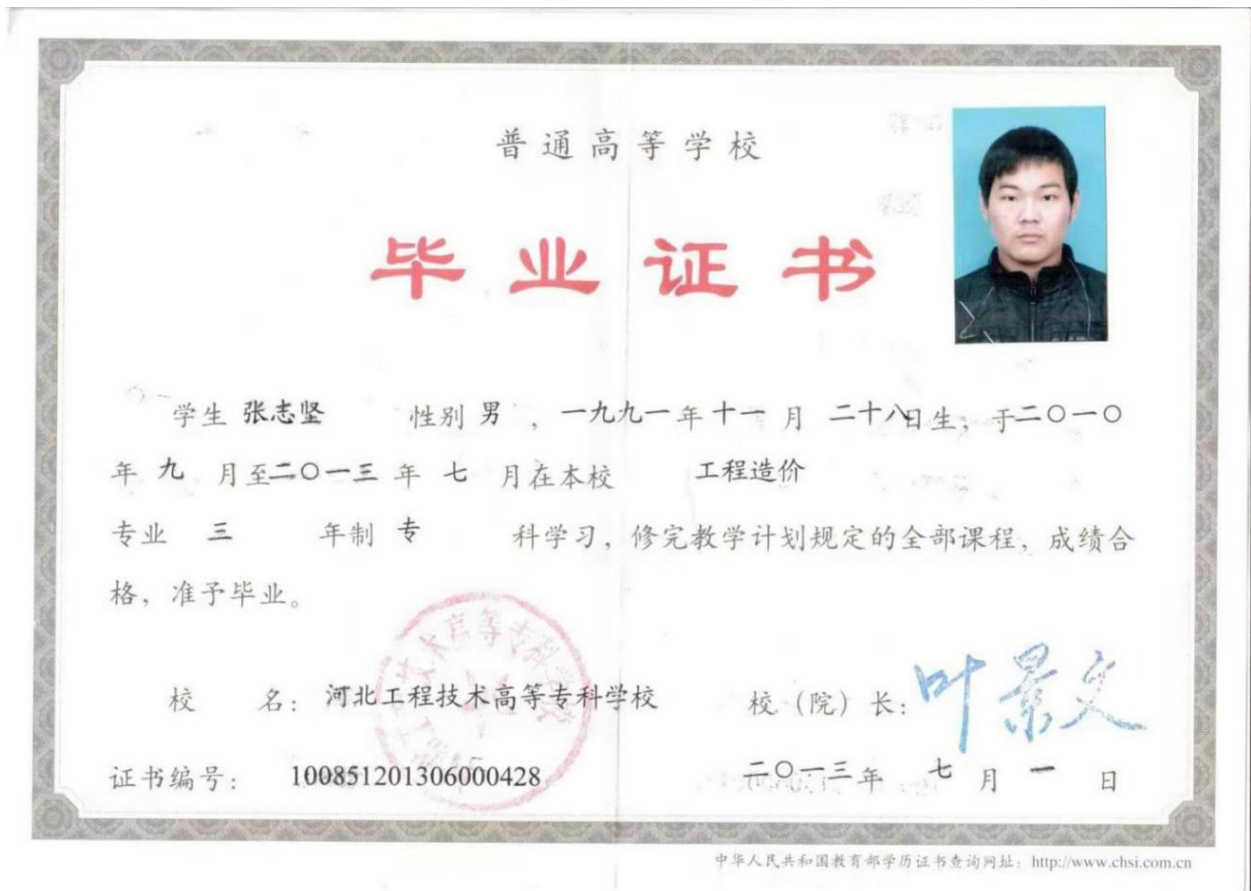 普通高等学校
毕业证书
学生 张志坚 性别 男 , 一九九一 年 十一 月 二十八日生, 于二〇一〇
年 九 月至二〇一三 年 七 月在本校 工程造价
专业 三 年制 专 科学习, 修完教学计划规定的全部课程, 成绩合
格, 准予毕业。
校 名: 河北工程技术高等专科学校 校 (院) 长: 叶景文
证书编号: 100851201306000428 二〇一三 年 七 月 一 日
中华人民共和国教育部学历证书查询网址: http://www.chsi.com.cn